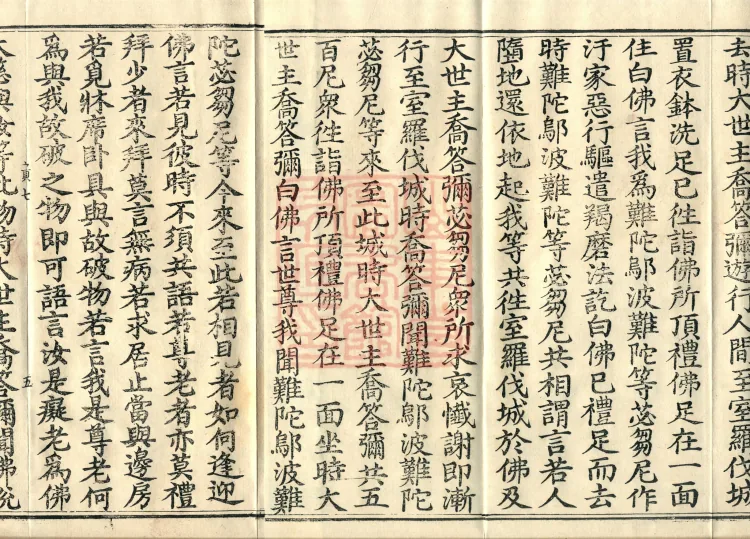 去時大世主喬答彌遊行人間至室羅伐城
置衣鉢洗足已徃詣佛所頂禮佛足在一面
住白佛言我爲難陀鄔波難陀等苾芻尼作
汙家惡行驅遣羯磨法訖白佛已禮足而去
時難陀鄔波難陀等苾芻尼共相謂言若人
墮地還依地起我等共徃室羅伐城於佛及
大世主喬答彌苾芻尼衆所求哀懺謝即漸
行至室羅伐城時喬答彌聞難陀鄔波難陀
苾芻尼等來至此城時大世主喬答彌共五
百尼衆徃詣佛所頂禮佛足在一面坐時大
世主喬答彌白佛言世尊我聞難陀鄔波難
陀苾芻尼等今來至此若相見者如何逢迎
佛言若見彼時不須共語若尊老者亦莫禮
拜少者來拜莫言無病若求居止當與邊房
若覓牀席卧具與故破物若言我是尊老何
爲與我故破之物即可語言汝是癡老爲佛
七 五
此物時大世主喬答彌聞佛